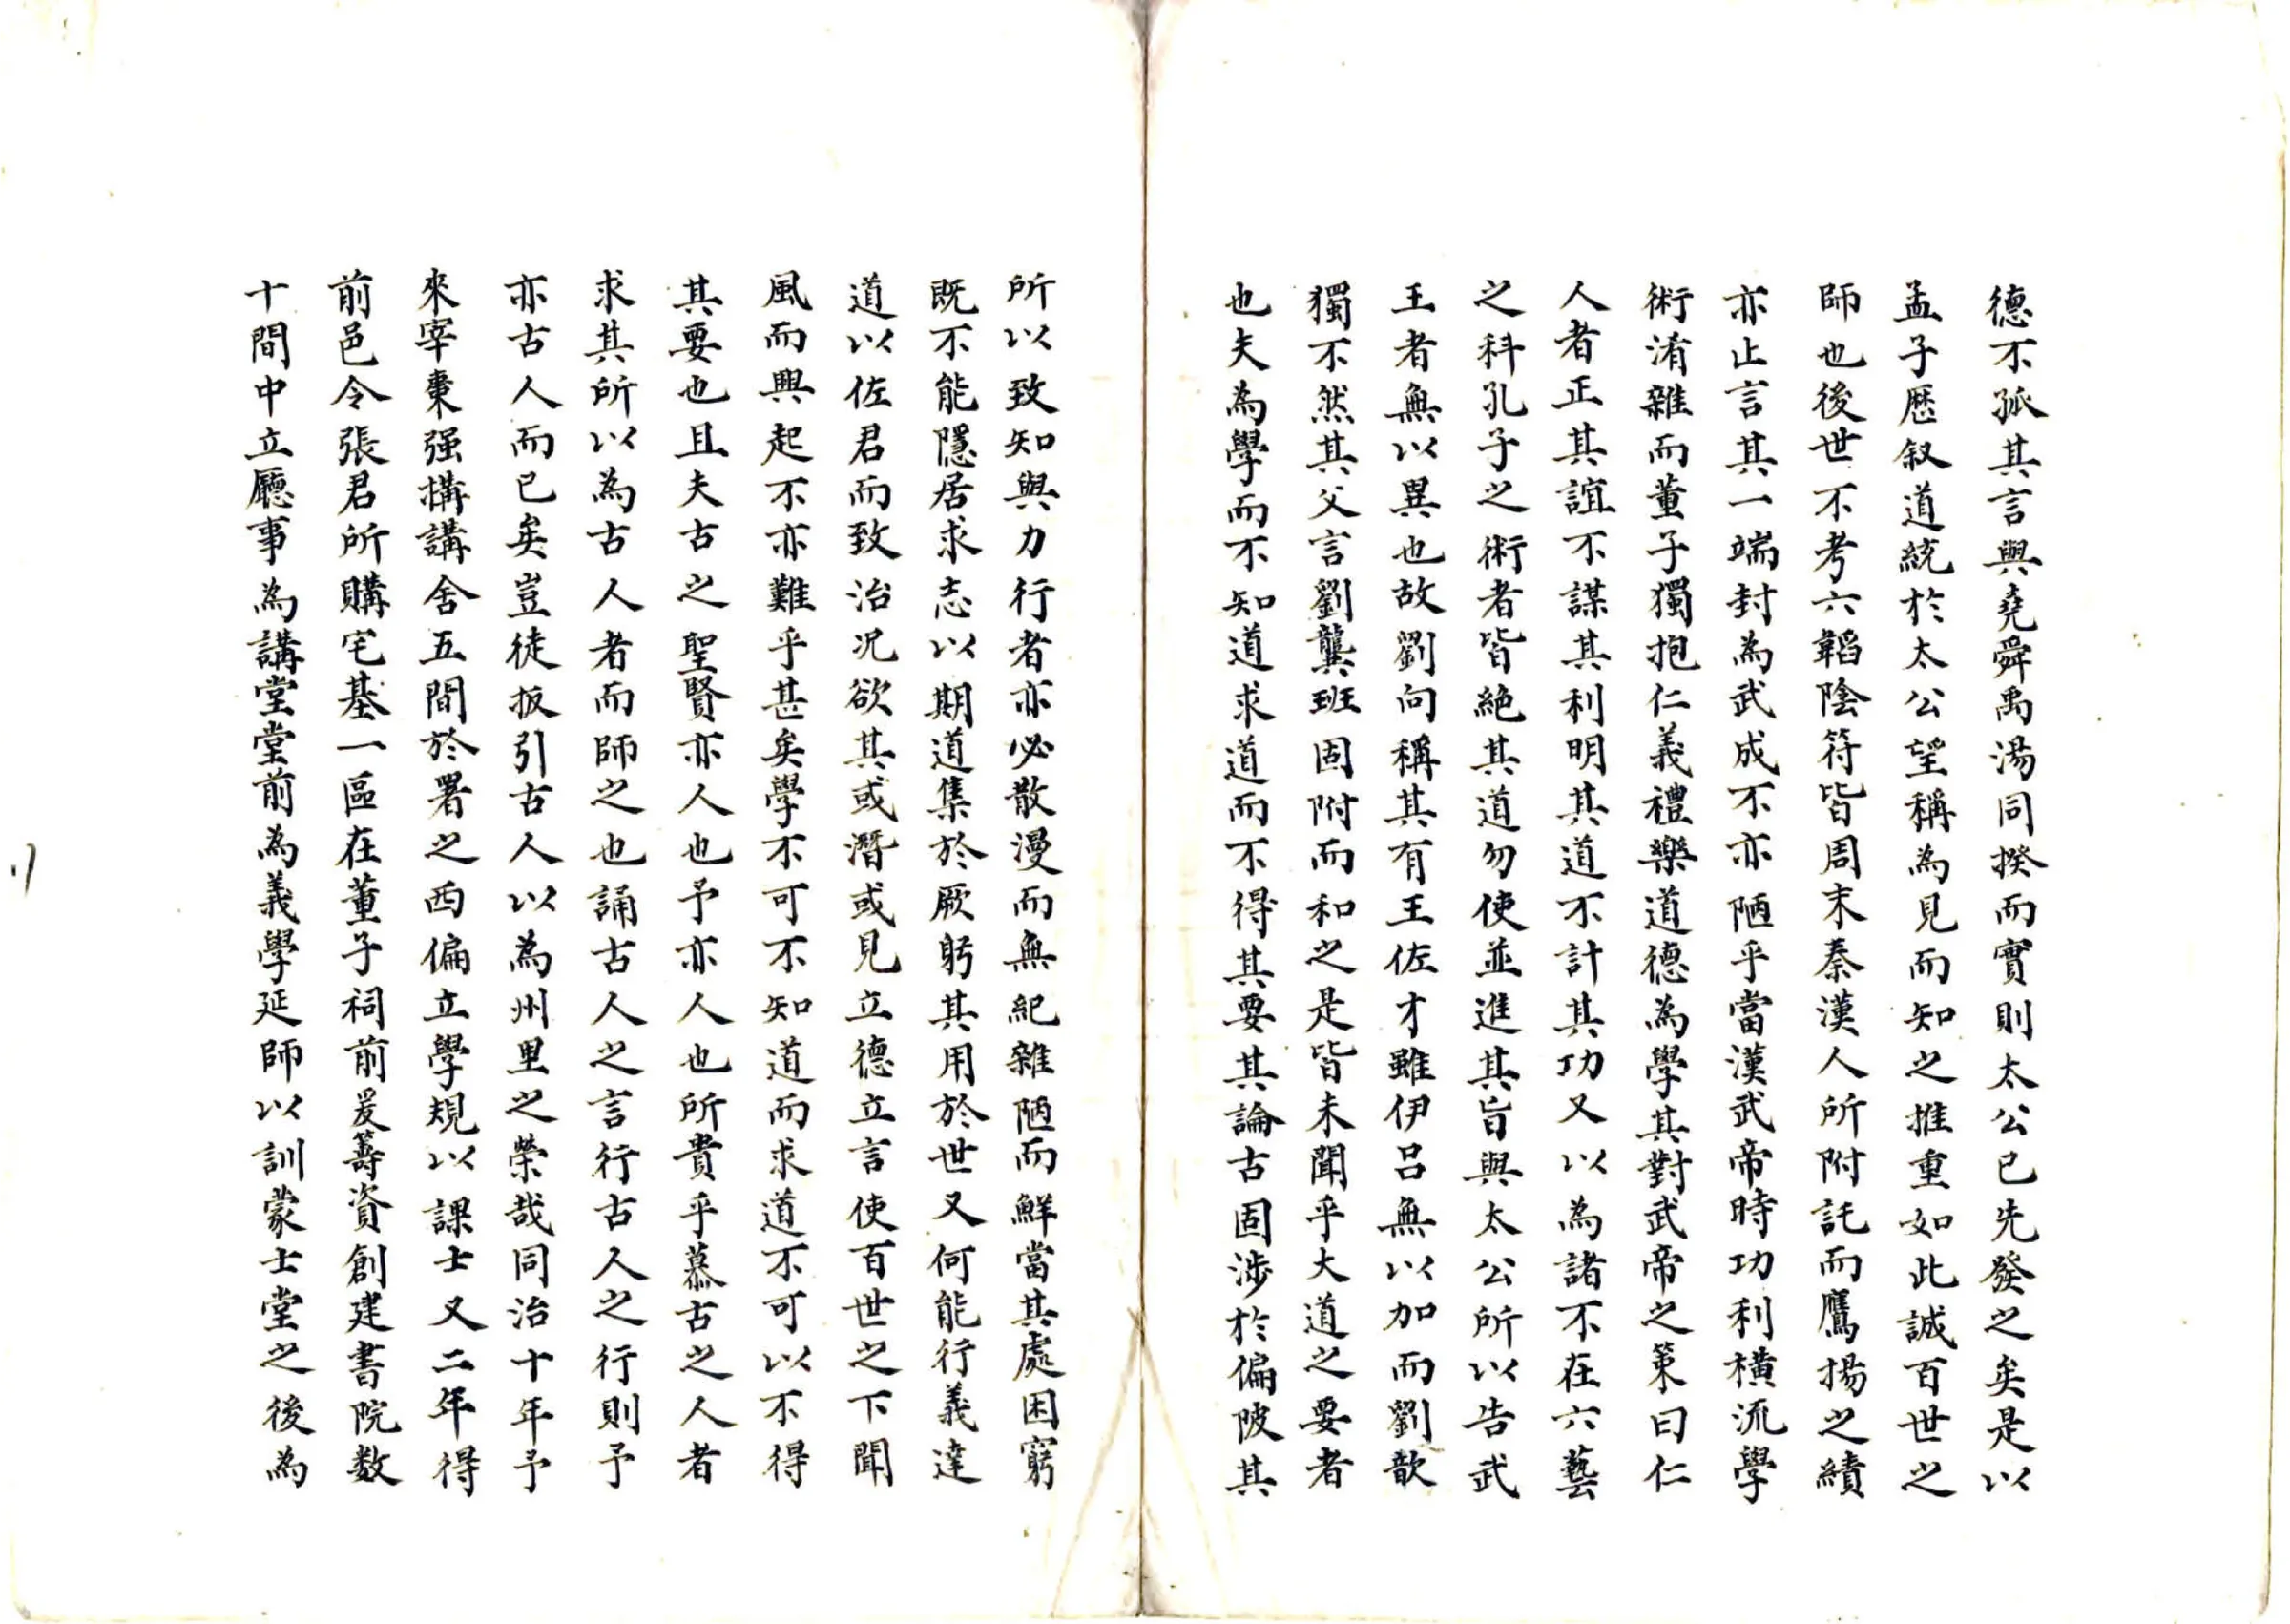 德不孤其言與堯舜禹湯同揆而實則太公已先發之矣是以
孟子歷叙道統於太公望稱為見而知之推重如此誠百世之
師也後世不考六韜陰符皆周末秦漢人所附託而鷹揚之績
亦止言其一端封為武成不亦陋乎當漢武帝時功利橫流學
術淆雜而董子獨抱仁義禮樂道德為學其對武帝之策曰仁
人者正其誼不謀其利明其道不計其功又以為諸不在六藝
之科孔子之術者皆絕其道勿使並進其旨與太公所以告武
王者無以異也故劉向稱其有王佐才雖伊呂無以加而劉歆
獨不然其父言劉龔班固附而和之是皆未聞乎大道之要者
也夫為學而不知道求道而不得其要其論古固涉於偏陂其
所以致知與力行者亦必散漫而無紀雜陋而鮮當其處困窮
既不能隱居求志以期道集於厥躬其用於世又何能行義達
道以佐君而致治況欲其或潛或見立德立言使百世之下聞
風而興起不亦難乎甚矣學不可不知道而求道不可以不得
其要也且夫古之聖賢亦人也予亦人也所貴乎慕古之人者
求其所以為古人者而師之也誦古人之言行古人之行則予
亦古人而已矣豈徒扳引古人以為州里之榮哉同治十年予
來宰棗强搆講舍五間於署之西偏立學規以課士又二年得
前邑令張君所購宅基一區在董子祠前爰籌資創建書院数
十間中立廳事為講堂堂前為義學延師以訓蒙士堂之後為